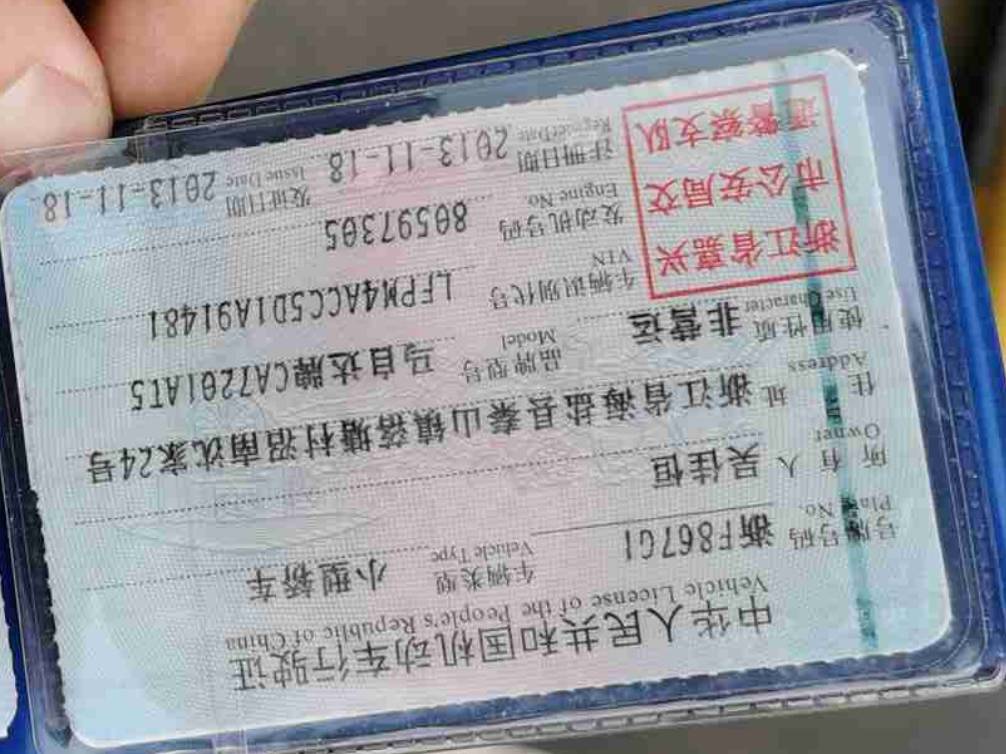 中华人民共和国机动车行驶证
Vehicle License of the People's Republic of China
号牌号码 浙F867G1 车辆类型 小型轿车
Plate No. Vehicle Type
所有人 吴佳恒
Owner
住址 浙江省海盐县秦山镇落塘村沼南沈家24号
Address
使用性质 非营运 品牌型号 马自达牌CA7201AT5
Use Character Model
车辆识别代号 LFPM4ACC5D1A91481
VIN
发动机号码 80597305
Engine No.
注册日期 2013-11-18 发证日期 2013-11-18
Register Date Issue Date
浙江省嘉兴
市公安局交
通警察支队